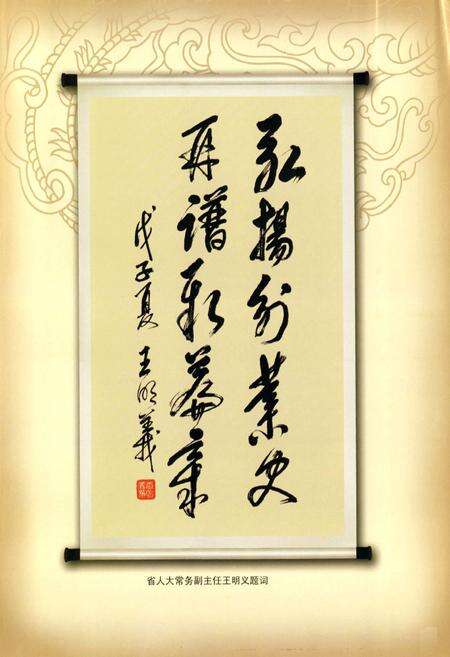 弘揚創業史
再譜新篇章
戊子夏 王明義
省人大常务副主任王明义题词